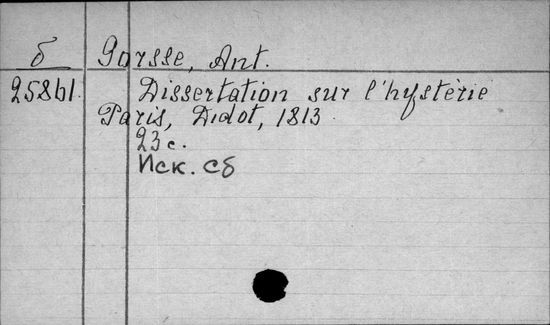 б Gorsse, Ant.
25861. Dissertation sur l'hystérie
Paris, Didot, 1813
23 с.
Иск. сб